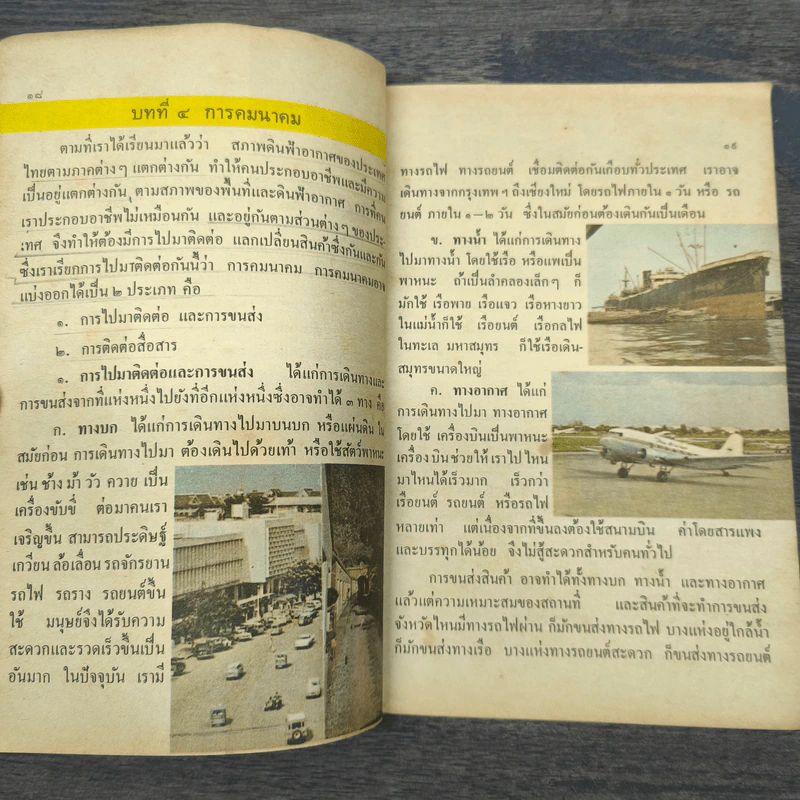 ๑๘
บทที่ ๔ การคมนาคม
ตามที่เราได้เรียนมาแล้วว่า สภาพดินฟ้าอากาศของประเทศ
ไทยตามภาคต่าง ๆ แตกต่างกัน ทำให้คนประกอบอาชีพและมีความ
เป็นอยู่แตกต่างกัน ตามสภาพของพื้นที่และดินฟ้าอากาศ การที่คน
เราประกอบอาชีพไม่เหมือนกัน และอยู่กันตามส่วนต่างๆ ของประ-
เทศ จึงทำให้ต้องมีการไปมาติดต่อ แลกเปลี่ยนสินค้าซึ่งกันและกัน
ซึ่งเราเรียกการไปมาติดต่อกันนี้ว่า การคมนาคม การคมนาคมอาจ
แบ่งออกได้เป็น ๒ ประเภท คือ
๑. การไปมาติดต่อ และการขนส่ง
๒. การติดต่อสื่อสาร
๑. การไปมาติดต่อและการขนส่ง ได้แก่การเดินทางและ
การขนส่งจากที่แห่งหนึ่งไปยังที่อีกแห่งหนึ่งซึ่งอาจทำได้ ๓ ทาง คือ
ก. ทางบก ได้แก่การเดินทางไปมาบนบก หรือแผ่นดิน ใน
สมัยก่อน การเดินทางไปมา ต้องเดินไปด้วยเท้า หรือใช้สัตว์พาหนะ
เช่น ช้าง ม้า วัว ควาย เป็น
เครื่องขับขี่ ต่อมาคนเรา
เจริญขึ้น สามารถประดิษฐ์
เกวียน ล้อเลื่อน รถจักรยาน
รถไฟ รถราง รถยนต์ขึ้น
ใช้ มนุษย์จึงได้รับความ
สะดวกและรวดเร็วขึ้นเป็น
อันมาก ในปัจจุบัน เรามี
๑๙
ทางรถไฟ ทางรถยนต์ เชื่อมติดต่อกันเกือบทั่วประเทศ เราอาจ
เดินทางจากกรุงเทพ ฯ ถึงเชียงใหม่ โดยรถไฟภายใน ๑ วัน หรือ รถ
ยนต์ ภายใน ๑—๒ วัน ซึ่งในสมัยก่อนต้องเดินกันเป็นเดือน
ข. ทางน้ำ ได้แก่การเดินทาง
ไปมาทางน้ำ โดยใช้เรือ หรือแพเป็น
พาหนะ ถ้าเป็นลำคลองเล็กๆ ก็
มักใช้ เรือพาย เรือแจว เรือหางยาว
ในแม่น้ำก็ใช้ เรือยนต์ เรือกลไฟ
ในทะเล มหาสมุทร ก็ใช้เรือเดิน-
สมุทรขนาดใหญ่
ค. ทางอากาศ ได้แก่
การเดินทางไปมา ทางอากาศ
โดยใช้ เครื่องบินเป็นพาหนะ
เครื่องบินช่วยให้ เราไป ไหน
มาไหนได้เร็วมาก เร็วกว่า
เรือยนต์ รถยนต์ หรือรถไฟ
หลายเท่า แต่เนื่องจากที่ขึ้นลงต้องใช้สนามบิน ค่าโดยสารแพง
และบรรทุกได้น้อย จึงไม่สู้สะดวกสำหรับคนทั่วไป
การขนส่งสินค้า อาจทำได้ทั้งทางบก ทางน้ำ และทางอากาศ
แล้วแต่ความเหมาะสมของสถานที่ และสินค้าที่จะทำการขนส่ง
จังหวัดไหนมีทางรถไฟผ่าน ก็มักขนส่งทางรถไฟ บางแห่งอยู่ใกล้น้ำ
ก็มักขนส่งทางเรือ บางแห่งทางรถยนต์สะดวก ก็ขนส่งทางรถยนต์